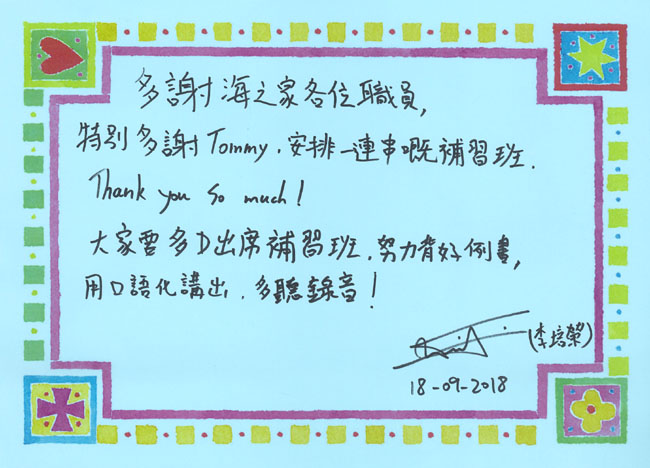 多謝海之家各位職員,
特別多謝Tommy,安排一連串嘅補習班.
Thank you so much!
大家要多D出席補習班,努力背好例書,
用口語化講出,多聽錄音!
(李培榮)
18-09-2018